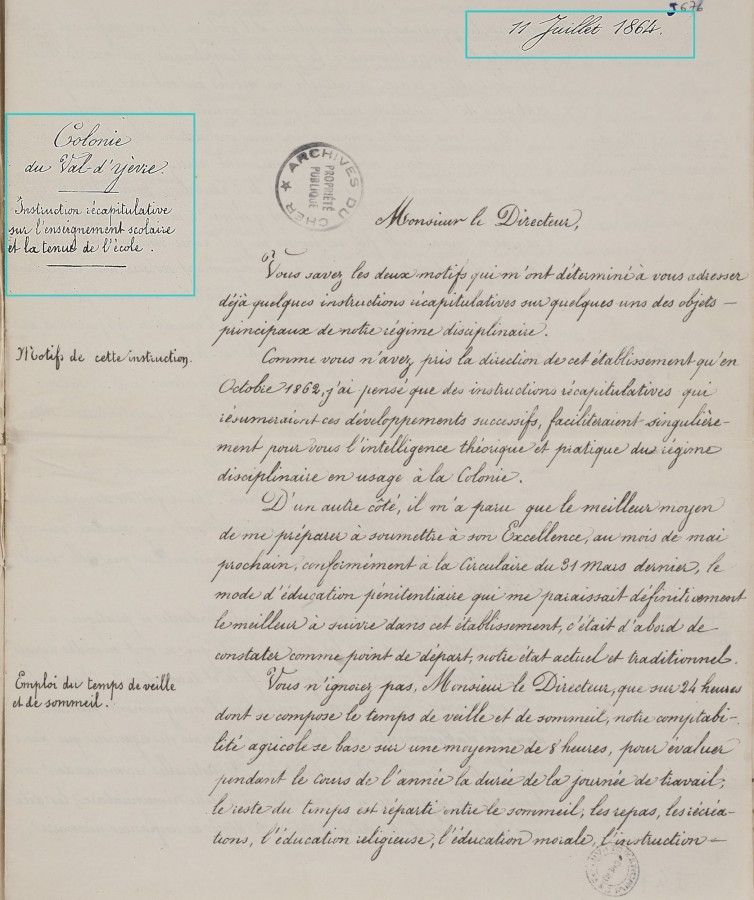 J 676
11 Juillet 1864.
Colonie
du Val-d'yèvre.
Instruction récapitulative
sur l'enseignement scolaire
et la tenue de l'école.
ARCHIVES DU CHER
PROPRIÉTÉ
PUBLIQUE
Monsieur le Directeur,
Vous savez les deux motifs qui m'ont déterminé à vous adresser
déjà quelques instructions récapitulatives sur quelques uns des objets —
principaux de notre régime disciplinaire.
Motifs de cette instruction.
Comme vous n'avez pris la direction de cet établissement qu'en
Octobre 1862, j'ai pensé que des instructions récapitulatives qui
résumeraient ces développements successifs, faciliteraient singulière-
ment pour vous l'intelligence théorique et pratique du régime
disciplinaire en usage à la Colonie.
D'un autre côté, il m'a paru que le meilleur moyen
de me préparer à soumettre à son Excellence, au mois de mai
prochain, conformément à la Circulaire du 31 Mars dernier, le
mode d'éducation pénitentiaire qui me paraissait définitivement
le meilleur à suivre dans cet établissement, c'était d'abord de
constater comme point de départ, notre état actuel et traditionnel.
Emploi du temps de veille
et de sommeil.
Vous n'ignorez pas, Monsieur le Directeur, que sur 24 heures
dont se compose le temps de veille et de sommeil, notre comptabi-
lité agricole se base sur une moyenne de 8 heures, pour évaluer
pendant le cours de l'année la durée de la journée de travail;
le reste du temps est réparti entre le sommeil, les repas, les récréa-
tions, l'éducation religieuse, l'éducation morale, l'instruction —